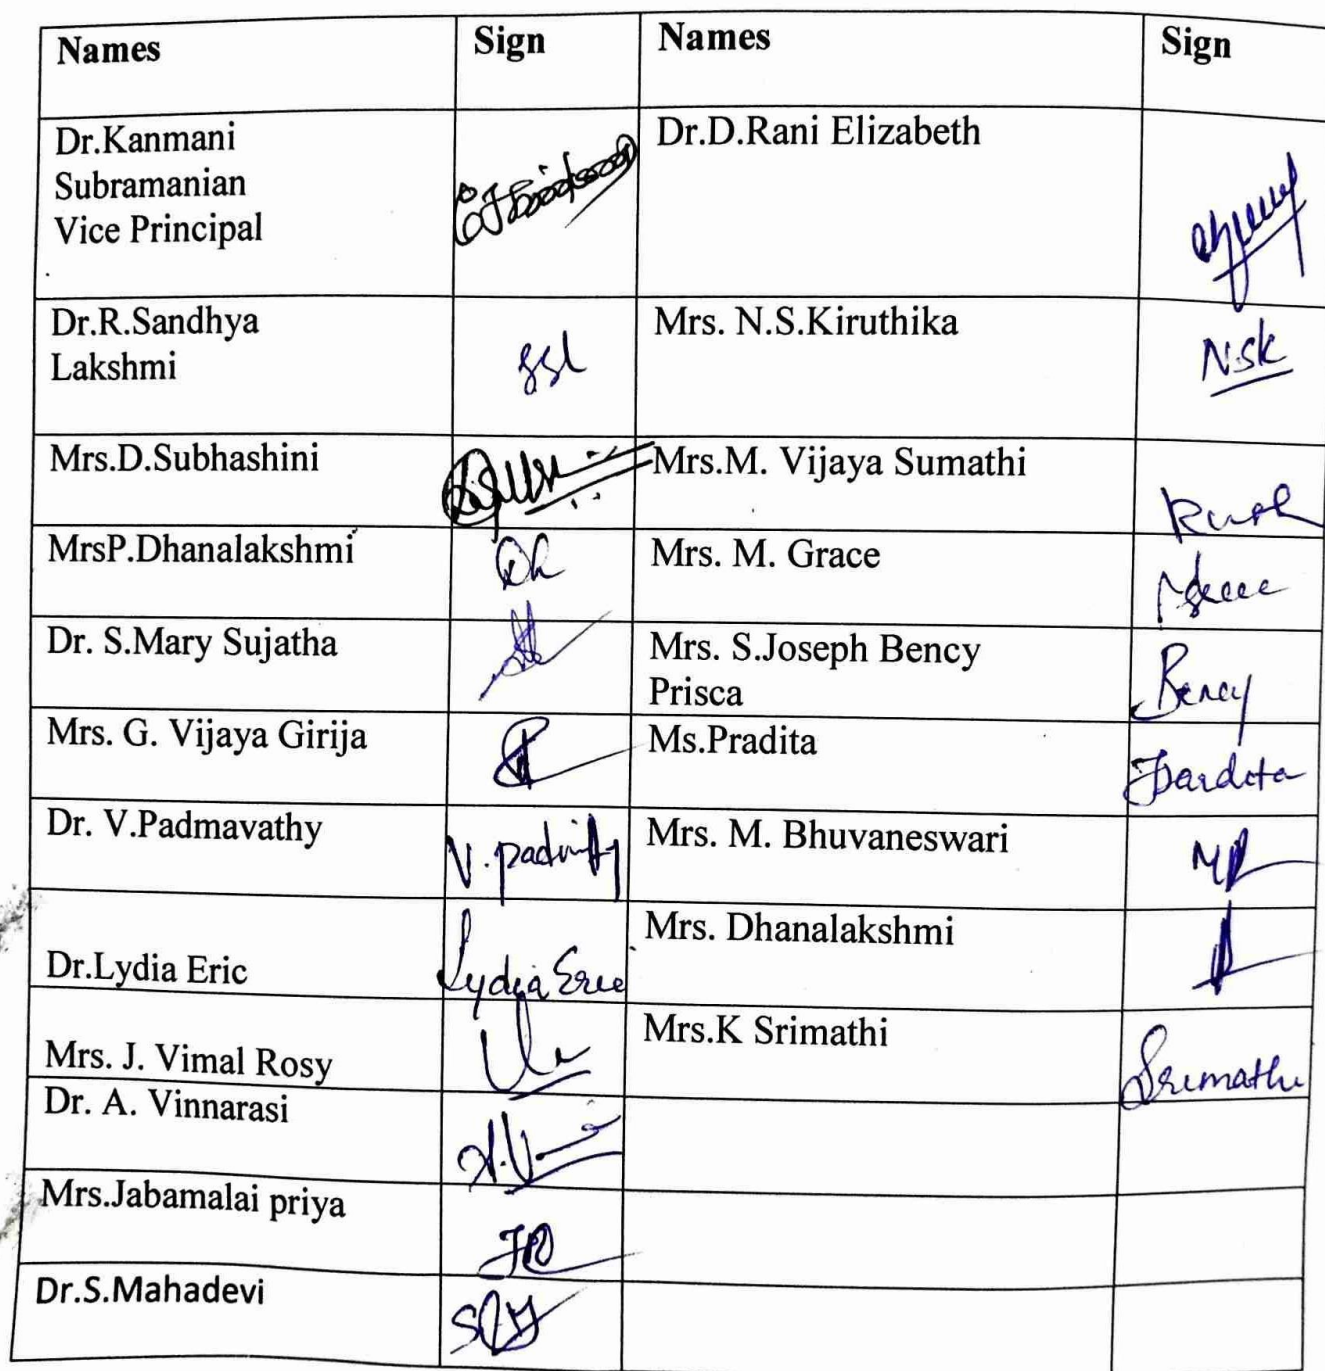 Names Sign Names Sign
Dr.Kanmani
Subramanian
Vice Principal
Dr.D.Rani Elizabeth
Dr.R.Sandhya
Lakshmi
ssl
Mrs. N.S.Kiruthika
NSK
Mrs.D.Subhashini
Mrs.M. Vijaya Sumathi
MrsP.Dhanalakshmi
Mrs. M. Grace
Dr. S.Mary Sujatha
Mrs. S.Joseph Bency
Prisca
Bency
Mrs. G. Vijaya Girija
Ms.Pradita
Dr. V.Padmavathy
Mrs. M. Bhuvaneswari
Dr.Lydia Eric
Lydia Eric
Mrs. Dhanalakshmi
Mrs. J. Vimal Rosy
Mrs.K Srimathi
Srimathi
Dr. A. Vinnarasi
Mrs.Jabamalai priya
Dr.S.Mahadevi